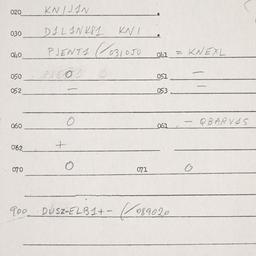 020 KNIJ1N
030 D1L1NK81 KNI
040 PJENT1 (/031050 041 = KNEXL
050 0 051 —
052 — 053 —
060 0 061 . — QBARVGS
062 +
070 0 071 0
900 DUSZ-ELB1+- (/089020